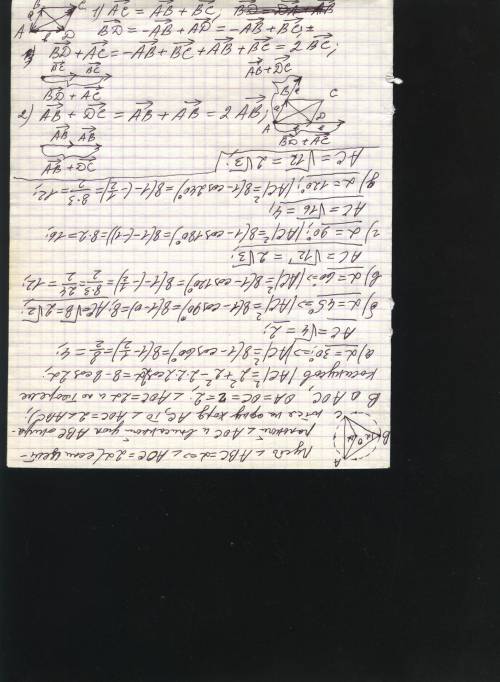 1) AC = AB + BC;
BD = -AB + AD = -AB + BC;
BD + AC = -AB + BC + AB + BC = 2BC;
AC BC
BD + AC
AB + DC
2) AB + DC = AB + AB = 2AB;
AB AB
AB + DC
BD + AC
A B C D
Пусть ∠ABC = α => ∠AOC = 2α (если цент-
ральный ∠AOC и вписанный угол ABC опира-
ются на одну хорду AC, то ∠AOC = 2∠ABC);
В Δ AOC, OA = OC = 2; ∠AOC = 2α и по теореме
косинусов |AC|² = 2² + 2² - 2·2·2 cos2α = 8 - 8cos2α;
а) α = 30° => |AC|² = 8(1 - cos60°) = 8(1 - 1/2) = 8/2 = 4;
AC = √4 = 2;
б) α = 45° => |AC|² = 8(1 - cos90°) = 8(1 - 0) = 8; AC = √8 = 2√2;
в) α = 60° => |AC|² = 8(1 - cos120°) = 8(1 - (-1/2)) = 8·3/2 = 24/2 = 12;
AC = √12 = 2√3;
г) α = 90°; |AC|² = 8(1 - cos180°) = 8(1 - (-1)) = 8·2 = 16;
AC = √16 = 4;
д) α = 120°; |AC|² = 8(1 - cos240°) = 8(1 - (-1/2)) = 8·3/2 = 12;
AC = √12 = 2√3;